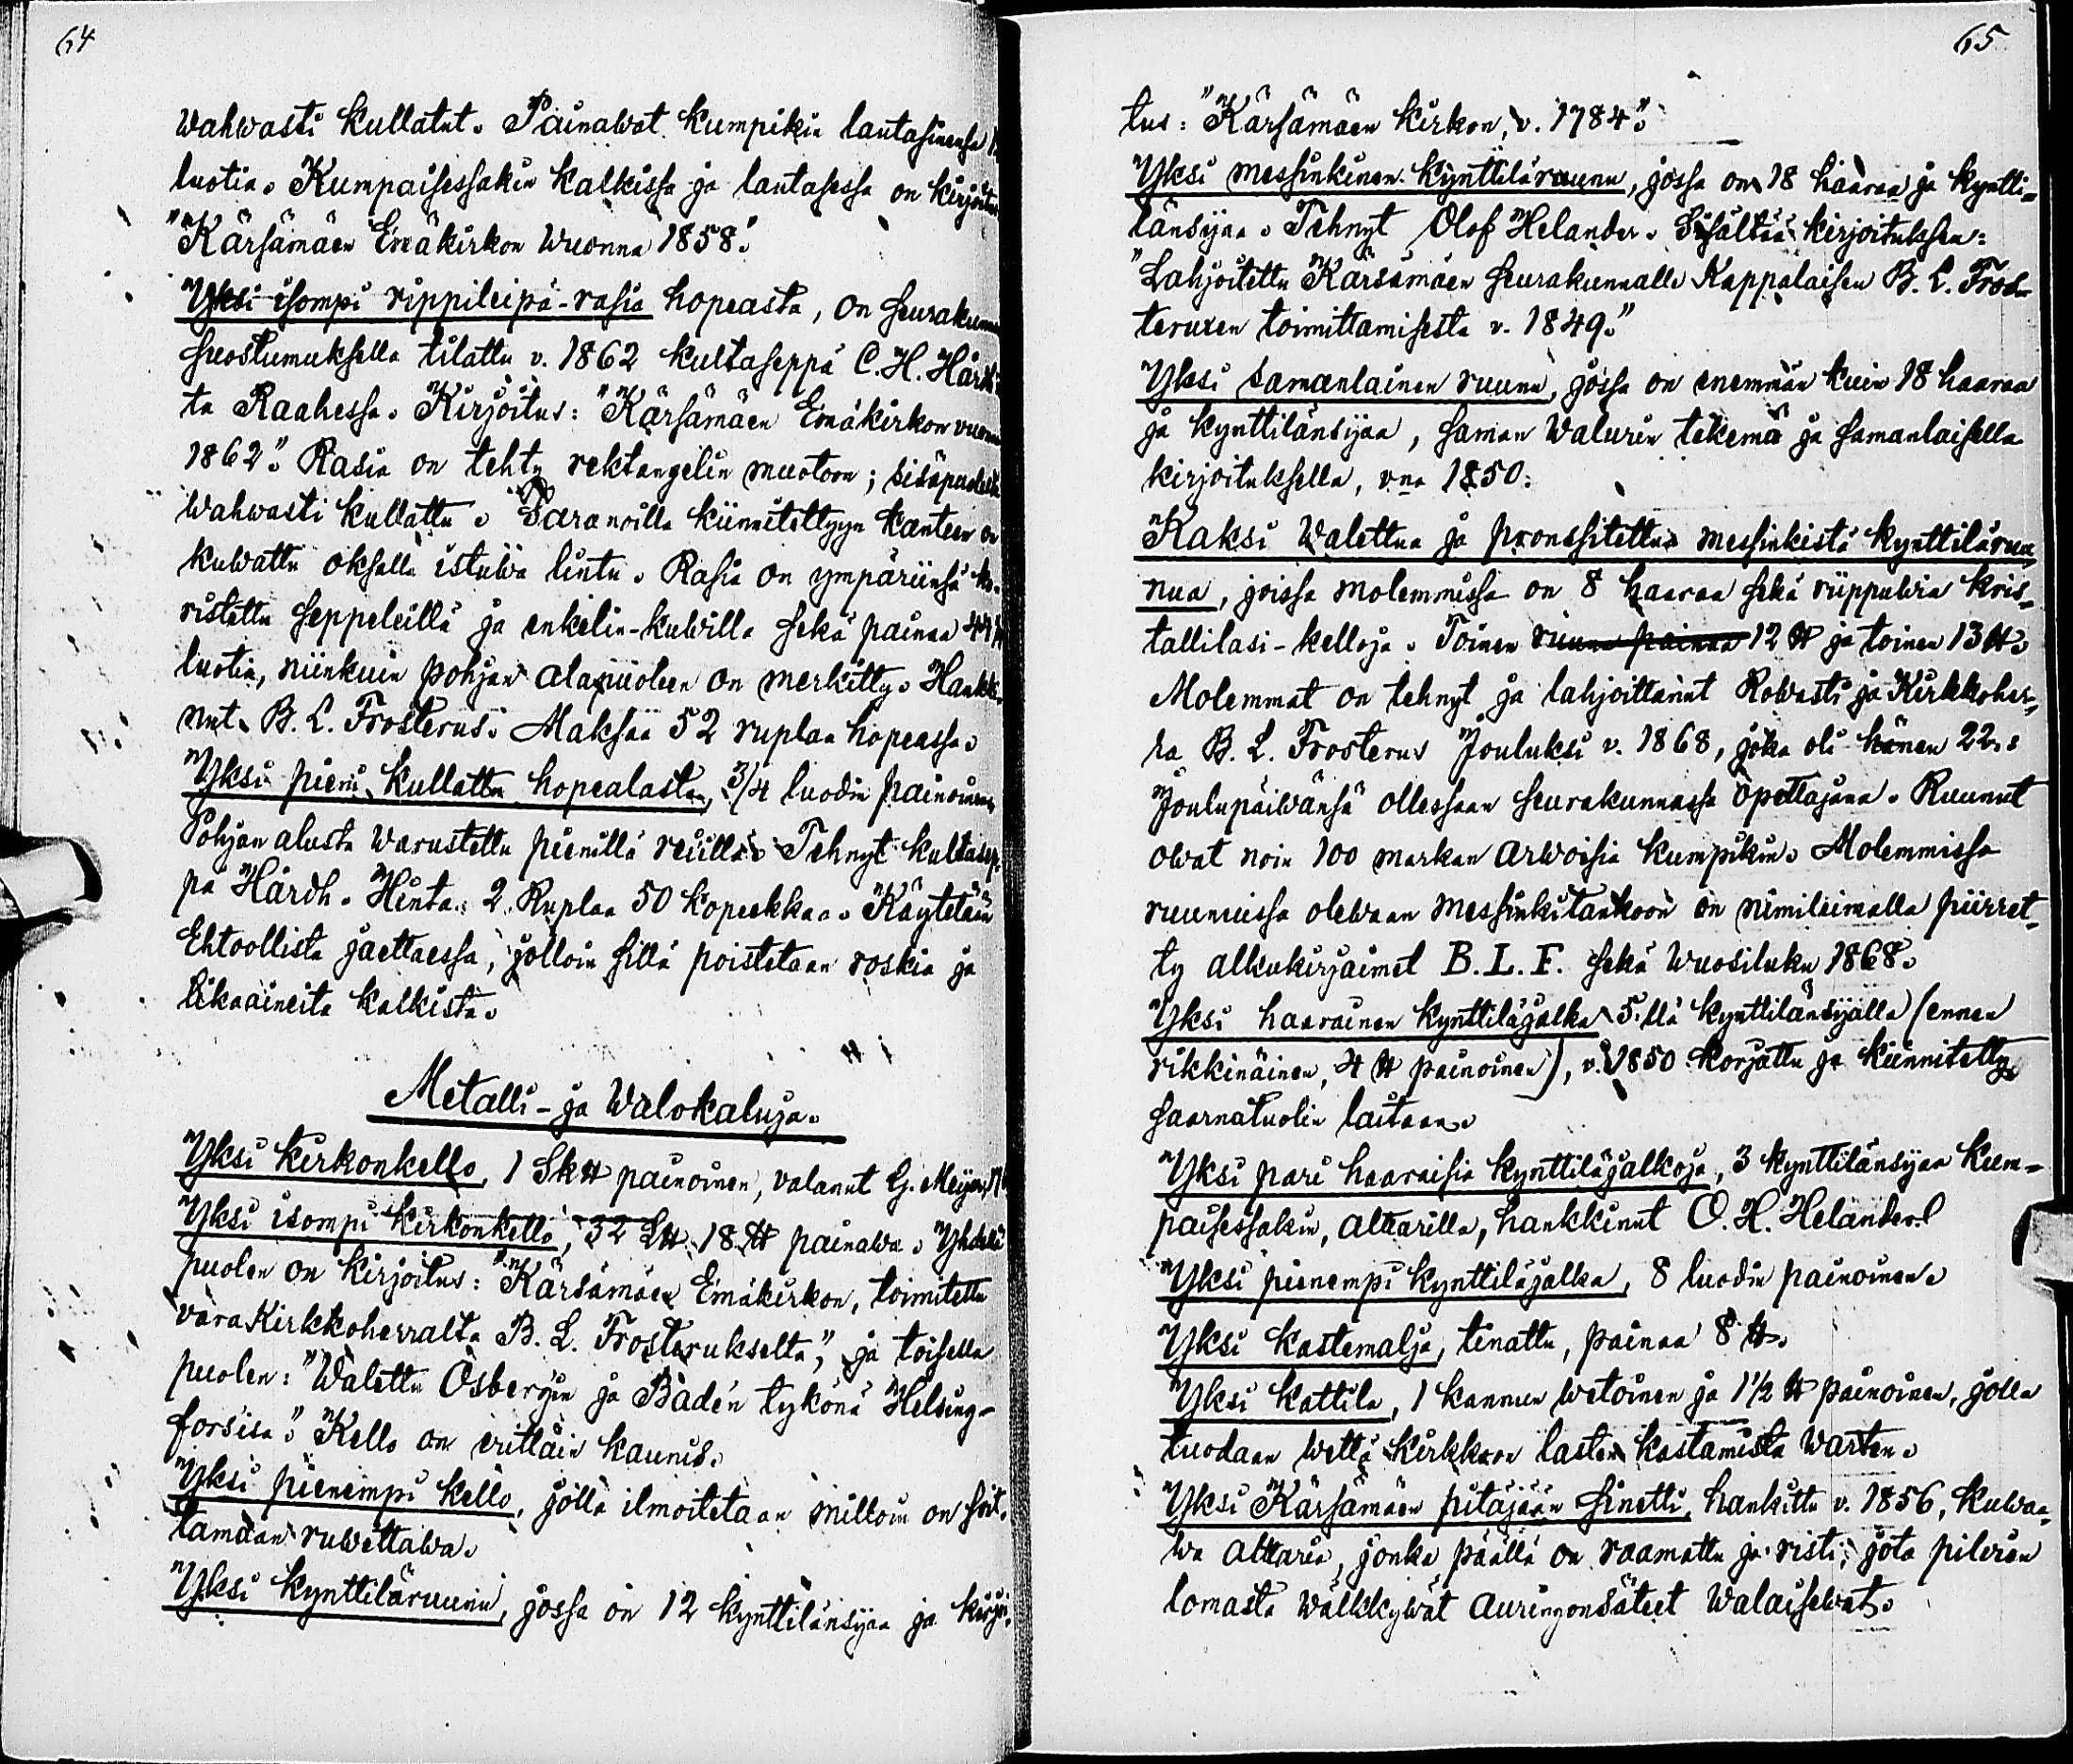 64
wahwasti kullatut. Painawat kumpikin lautasinensa
luotia. Kumpaisessakin kalkissa ja lautasessa on kirjoitus
"Kärsämäen Emäkirkon wuonna 1858."
Yksi isompi rippileipä-rasia hopeasta, on seurakun
suostumuksella tilattu v. 1862 kultaseppä C. H. Hård
ta Raahessa. Kirjoitus: "Kärsämäen Emäkirkon vuonna
1862". Rasia on tehty rektangelin muotoon; sisäpuolelta
wahwasti kullattu. Saranoilla kiinnitettyyn kanteen on
kuwattu oksalla istuwa lintu. Rasia on ympäriinsä ko-
ristettu seppeleillä ja enkelin-kuwilla sekä painaa 44
luotia, niinkuin pohjan alapuoleen on merkitty. Hankki-
nut B. L. Frosterus. Maksaa 52 ruplaa hopeassa.
Yksi pieni kullattu hopealasta, 3/4 luodin painoinen
Pohjan alusta warustettu pienillä reiillä. Tehnyt kultasep-
pä Hårdh. Hinta: 2 Ruplaa 50 kopeekkaa. Käytetään
Ehtoollista jaettaessa, jolloin sillä poistetaan roskia ja
likaaineita kalkista.
Metalli- ja Walokaluja.
Yksi kirkonkello, 1 Sk℔ painoinen, valanut G. Meijer
Yksi isompi kirkonkello, 32 L℔ 18 ℔ painawa. Yhdellä
puolen on kirjoitus: "Kärsämäen Emäkirkon, toimitettu
vara Kirkkoherralta B. L. Frosterukselta", ja toisella
puolen: "Walettu Osbergin ja Badén tykönä Helsing-
forsisa". Kello on erittäin kaunis.
Yksi pienempi kello, jolla ilmoitetaan milloin on soit-
tamaan ruwettawa.
Yksi kynttiläruunu, jossa on 12 kynttilänsijaa ja kirjoi-
65
tus: "Kärsämäen Kirkon, v. 1784".
Yksi messinkinen kynttiläruunu, jossa on 18 haaraa ja kyntti-
länsijaa. Tehnyt Olof Helander. Sisältää kirjoituksen:
"Lahjoitettu Kärsämäen seurakunnalle Kappalaisen B. L. Fros-
teruxen toimittamisesta v. 1849."
Yksi samanlainen ruunu, jossa on enemmän kuin 18 haaraa
ja kynttilänsijaa, saman Walurin tekemä ja samanlaisella
kirjoituksella, vna 1850.
Kaksi Walettua ja pronssitettua messinkistä kynttiläruu-
nua, joissa molemmissa on 8 haaraa sekä riippuwia kris-
tallilasi-kelloja. Toinen ruunu painaa 12 ℔ ja toinen 13 ℔.
Molemmat on tehnyt ja lahjoittanut Rowasti ja Kirkkoher-
ra B. L. Frosterus Jouluksi v. 1868, joka oli hänen 22.s
Joulupäiwänsä ollessaan seurakunnassa opettajana. Ruunut
owat noin 100 markan arwoisia kumpikin. Molemmissa
ruunuissa olewaan messinkitankoon on nimileimalla piirret-
ty alkukirjaimet B. L. F. sekä wuosiluku 1868.
Yksi haarainen kynttiläjalka 5:llä kynttilänsijalla (ennen
rikkinäinen, 4 ℔ painoinen), v. 1850 korjattu ja kiinnitetty
saarnatuolin laitaan.
Yksi pari haaraisia kynttiläjalkoja, 3 kynttilänsijaa kum-
paisessakin, alttarilla, hankkinut O. H. Helander.
Yksi pienempi kynttiläjalka, 8 luodin painoinen.
Yksi kastemalja, tinattu, painaa 8 ℔.
Yksi kattila, 1 kannun wetoinen ja 1 1/2 ℔ painoinen, jolla
tuodaan wettä kirkkoon lasten kastamista warten.
Yksi Kärsämäen pitäjään sinetti, hankittu v. 1856, kuwaa-
wa alttaria, jonka päällä on raamattu ja risti, jota pilwien
lomasta wälkkywät auringonsäteet walaisewat.